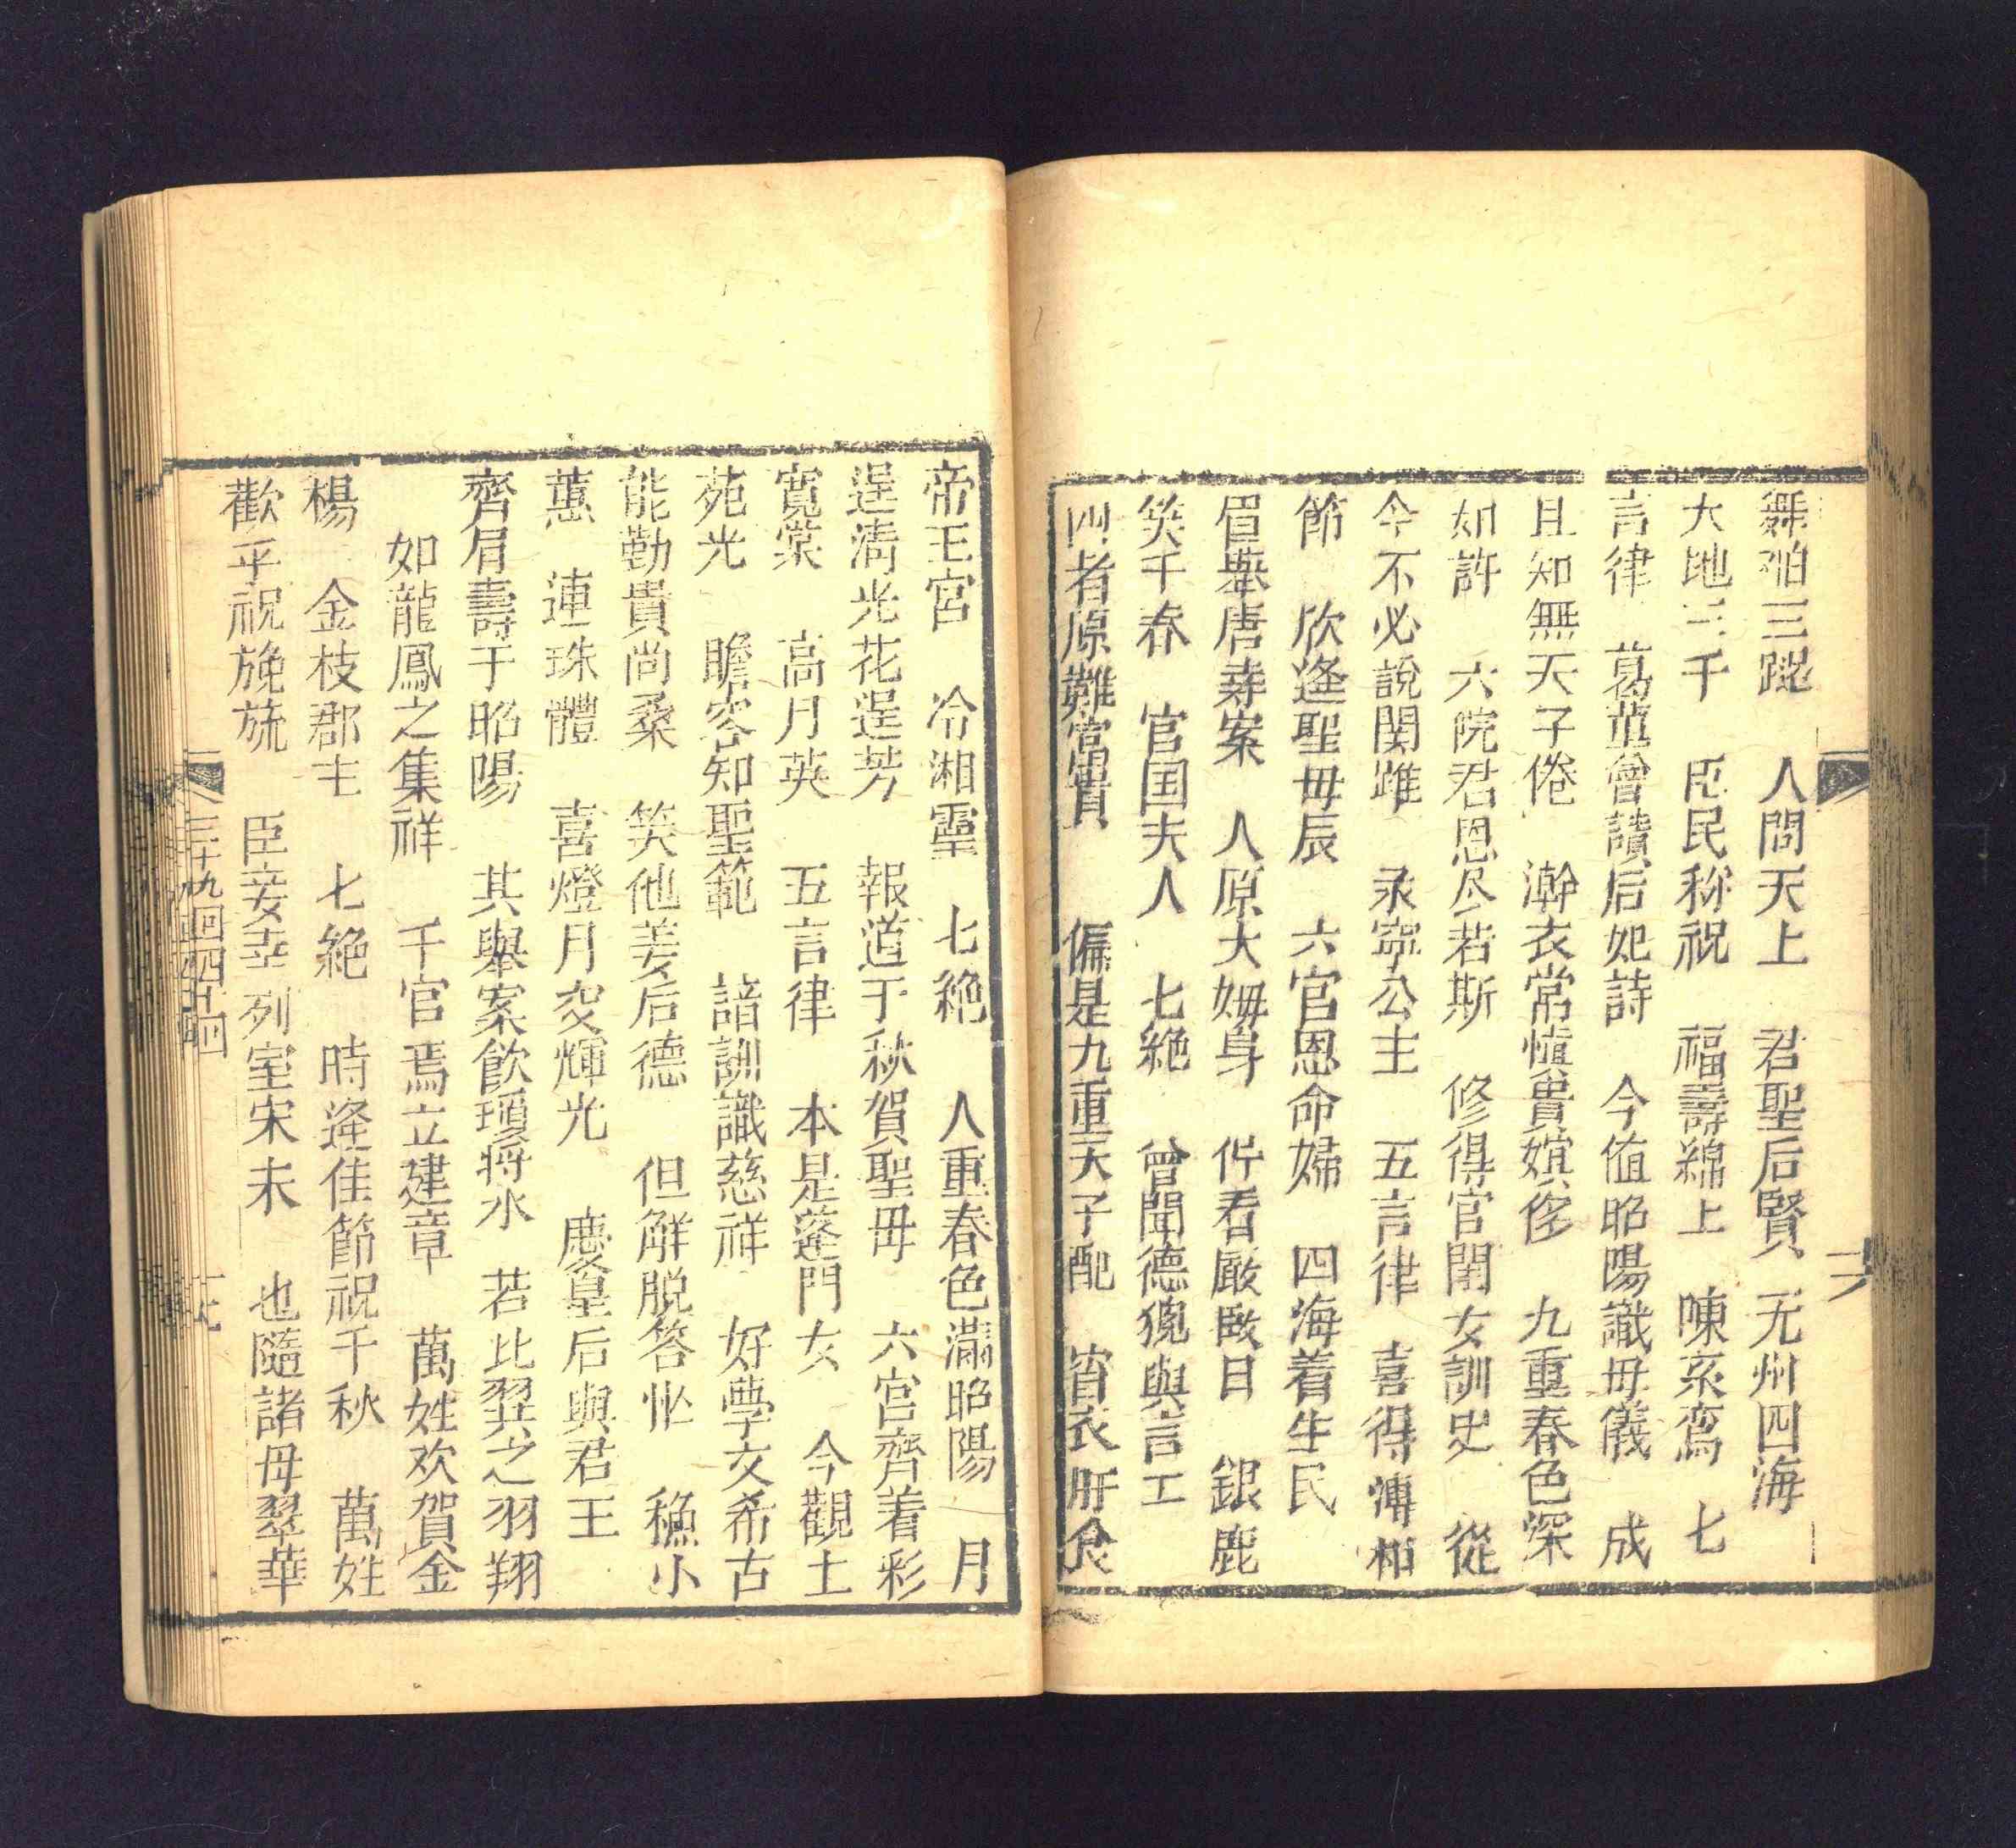 舞袖三蹤　人間天上　君聖后賢　无州四海
大地三千　臣民称祝　福壽綿上　陳亥鸾　七
言律　葛蕈曾讀后妃詩　今值昭陽識毋儀　成
且知無天子倦　澣衣常憻貴嬪侈　九重春色深
如許　六院君恩尽若斯　修得宫閨女訓史　從
今不必說関雎　永寧公主　五言律　喜得傳柑
節　欣逢聖毋辰　六宫恩命婦　四海着生民
眉舉唐萊案　人原大姆身　仵看厳敞日　銀鹿
笑千春　官国夫人　七絶　曾聞德㒵與言工
四者原難富貴　偏是九重天子配　宵衣肝食
帝王宫　冷湘靈　七絶　人重春色滿昭陽　月
逞清光花逞芳　報道于秋賀聖毋　六宫齊着彩
寬裳　高月英　五言律　本是蓬門女　今觀土
苑光　瞻容知聖範　諳訓識慈祥　好學文希古
能勤貴尚桑　笑他姜后德　但觧脱答怭　穐小
蕙　連珠體　喜燈月交輝光　慶皇后與君王
齊眉壽于昭陽　其舉案飲瓊漿水　若比翼之羽翔
如龍鳳之集祥　千官焉立建章　萬姓欢賀金
楊　金枝郡主　七絶　時逢佳節祝千秋　萬姓
歡乎祝旒　臣妾 列室宋未　也隨諸母翠華
三十九廻四十廻